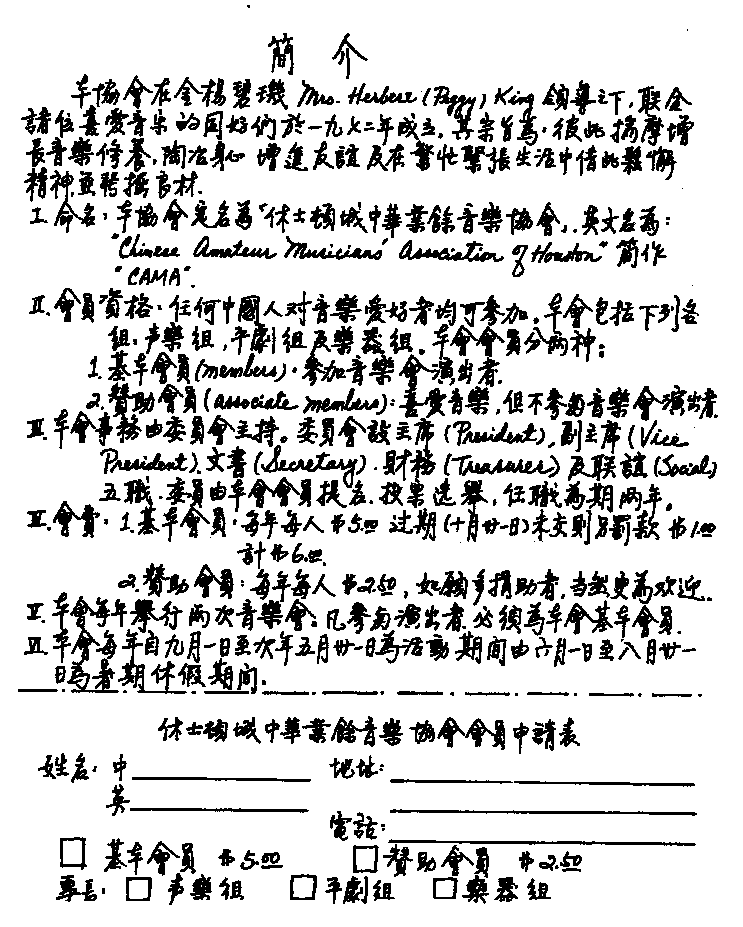 簡介
本協會在金楊碧璣 Mrs. Herbert (Peggy) King 領導之下,聯合
諸位喜愛音樂的同好們於一九七二年成立。其宗旨為,彼此揣摩增
長音樂修養,陶冶身心增進友誼及在繁忙緊張生活中借此鬆懈
精神並發掘良材.
I. 命名:本協會定名為"休士頓城中華業餘音樂協會",英文名為:
"Chinese Amateur Musicians' Association of Houston" 簡作
"CAMA".
II. 會員資格:任何中國人对音樂愛好者均可參加。本會包括下列各
組:声樂組,平劇組及樂器組。本會會員分两种:
1. 基本會員(members):參加音樂會演出者.
2. 贊助會員(associate members):喜愛音樂,但不參與音樂會演出者.
III. 本會事務由委員會主持。委員會設主席(President),副主席(Vice
President).文書(Secretary).財務(Treasurer)及联誼(Social)
五職.委員由本會會員提名.投票选舉,任職為期两年。
IV. 會費:1.基本會員:每年每人$5.00 过期(十月卅一日)未交則另罰款$1.00
計$6.00.
2.贊助會員:每年每人$2.50,如願多捐助者,当然更為欢迎..
V. 本會每年舉行两次音樂會:凡參與演出者.必須為本會基本會員.
VI. 本會每年自九月一日至次年五月卅一日為活動期間由六月一日至八月卅一
日為暑期休假期间.
休士頓城中華業餘音樂協會會員申請表
姓名:中 地址:
英
電話:
基本會員 $5.00 贊助會員 $2.50
專長: 声樂組 平劇組 樂器組